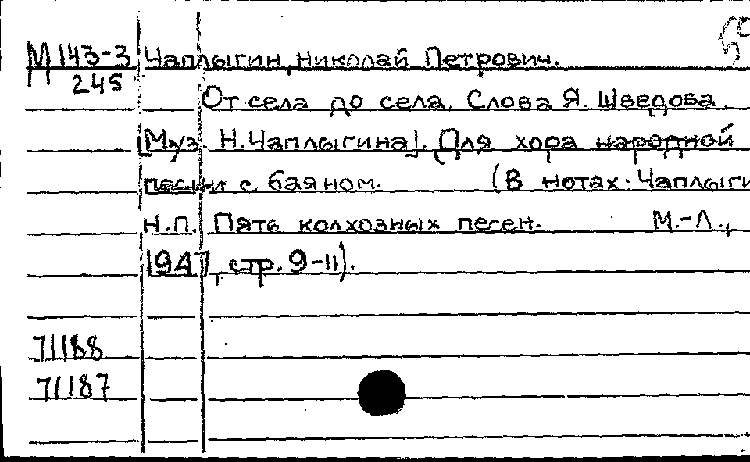 М143-3 Чаплыгин, Николай Петрович.
245
От села до села. Слова Я. Шведова
[Муз. Н. Чаплыгина]. Для хора народной
песни с баяном. (В нотах: Чаплыги
Н.П. Пять колхозных песен. М.-Л.,
1947, стр. 9-11).
71188
71187